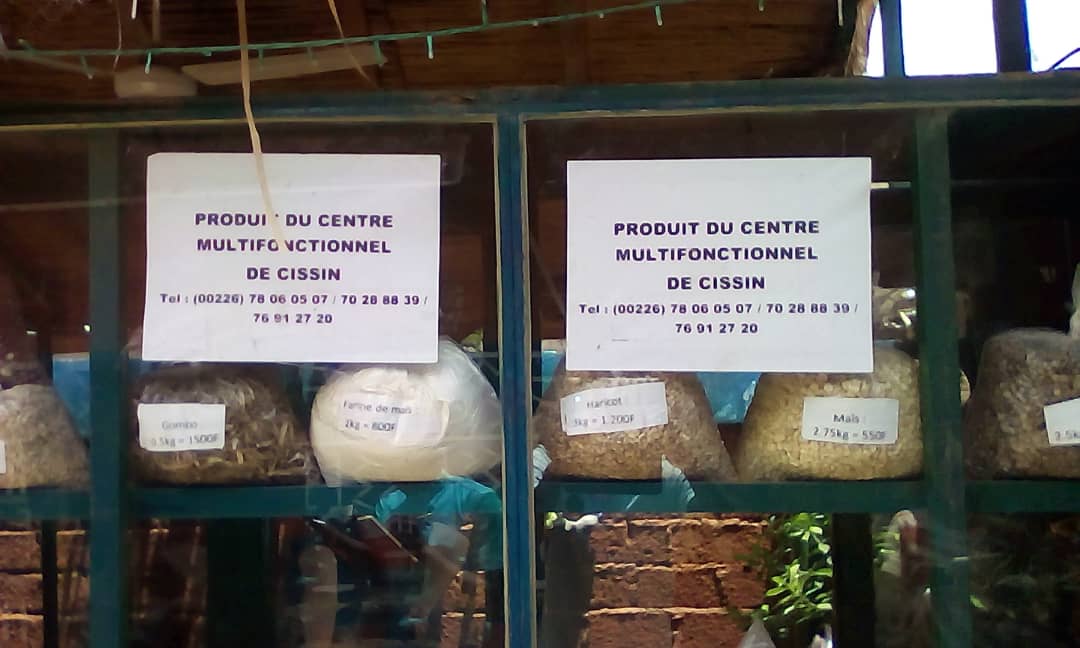 PRODUIT DU CENTRE
MULTIFONCTIONNEL
DE CISSIN
Tel : (00226) 78 06 05 07 / 70 28 88 39 /
76 91 27 20
PRODUIT DU CENTRE
MULTIFONCTIONNEL
DE CISSIN
Tel : (00226) 78 06 05 07 / 70 28 88 39 /
76 91 27 20
Gombo
0.5kg = 1500F
Farine de maïs
2kg = 800F
Haricot
3kg = 1.200F
Maïs
2.75kg = 550F